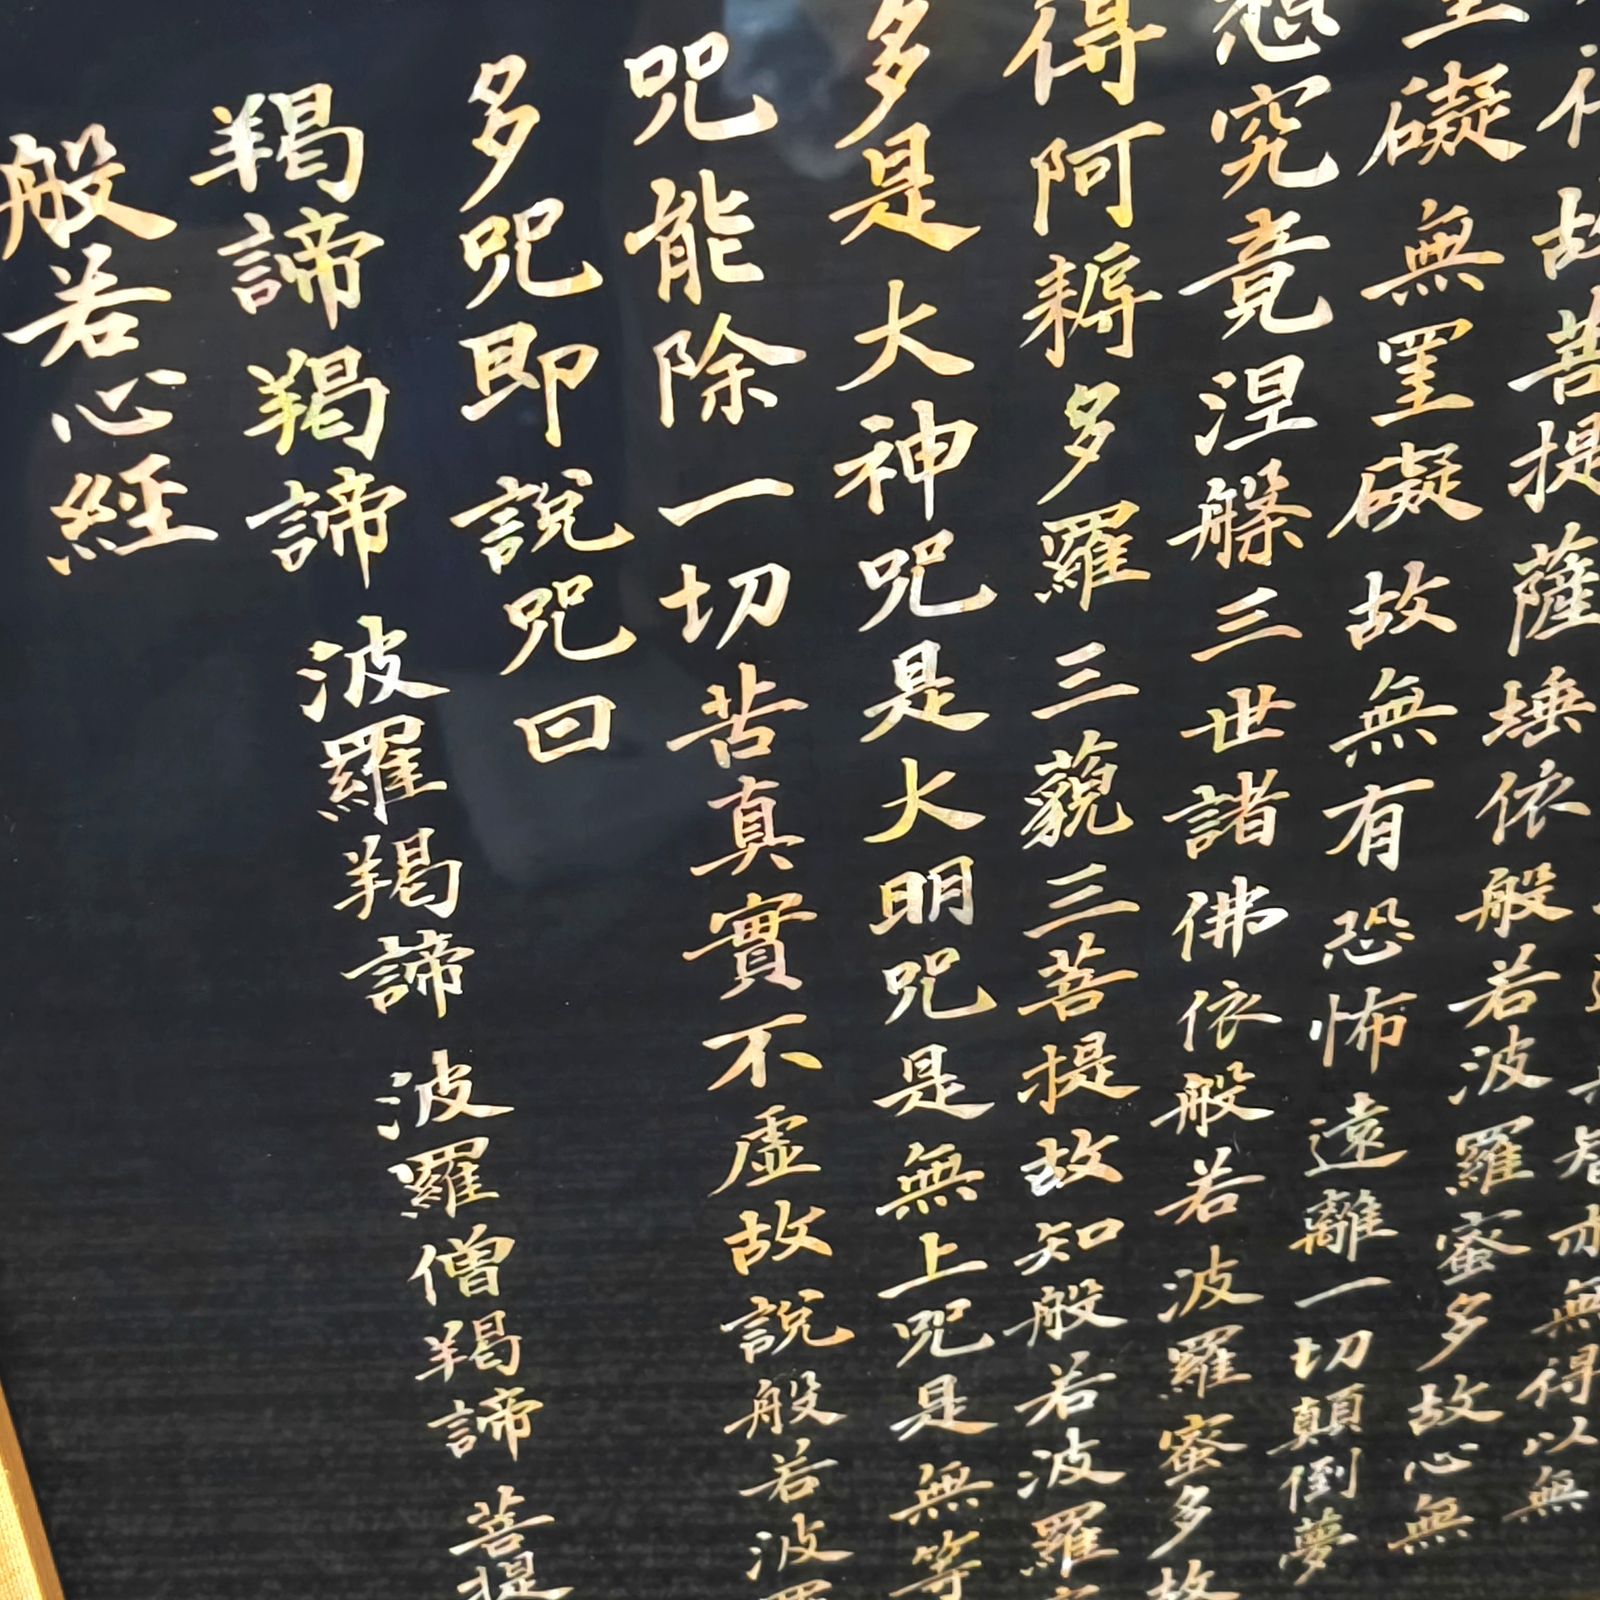 亦無得以無
故菩提薩埵依般若波羅蜜多故心無
礙無罣礙故無有恐怖遠離一切顛倒夢
想究竟涅槃三世諸佛依般若波羅蜜多故
得阿耨多羅三藐三菩提故知般若波羅
多是大神呪是大明呪是無上呪是無等
呪能除一切苦真實不虛故說般若波
多呪即說呪曰
羯諦羯諦 波羅羯諦 波羅僧羯諦 菩提
般若心經